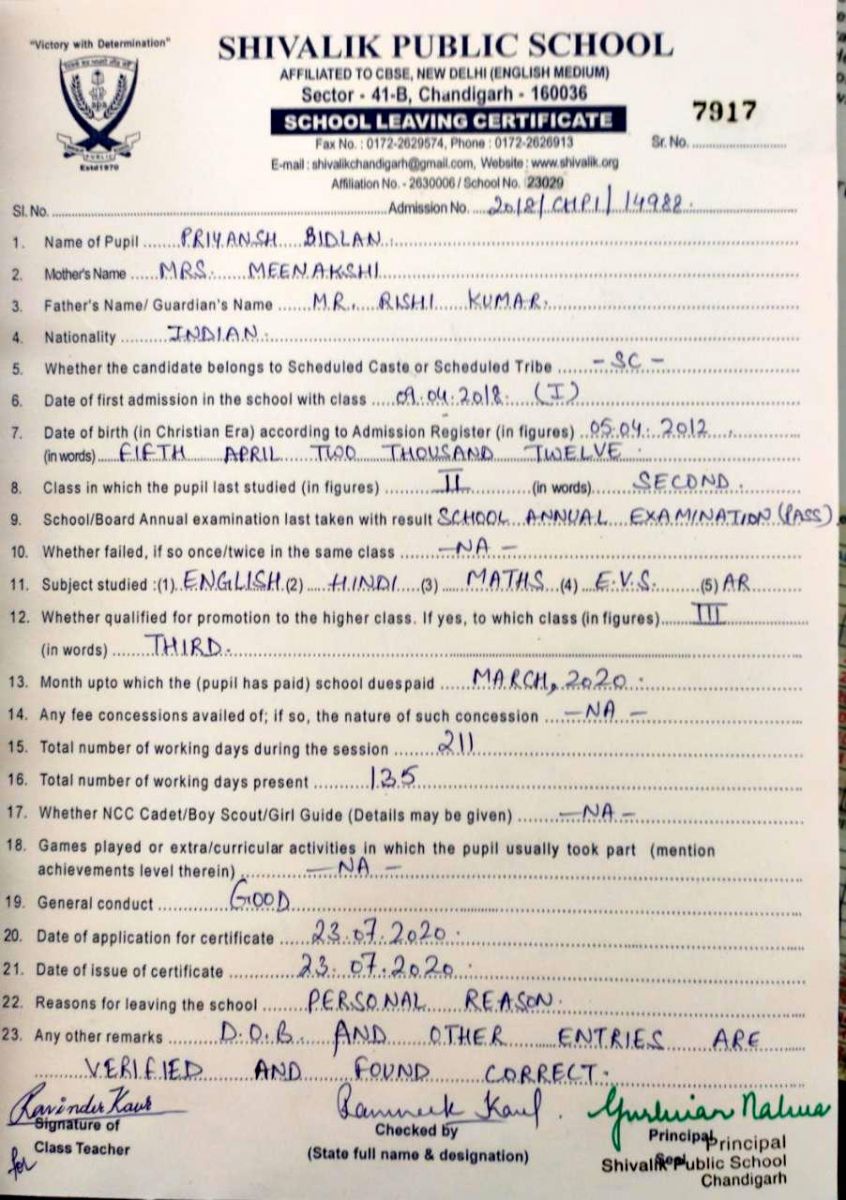 "Victory with Determination"
SHIVALIK PUBLIC SCHOOL
AFFILIATED TO CBSE, NEW DELHI (ENGLISH MEDIUM)
Sector - 41-B, Chandigarh - 160036
SCHOOL LEAVING CERTIFICATE
7917
Fax No. : 0172-2629574, Phone : 0172-2626913
Sr. No.
E-mail : shivalikchandigarh@gmail.com, Website : www.shivalik.org
PUBLIC
Estd1970
Affiliation No. - 2630006 / School No. 23029
Sl. No. Admission No. 2018/CHP1/14988.
1. Name of Pupil PRIYANSH BIDLAN.
2. Mother's Name MRS. MEENAKSHI
3. Father's Name/ Guardian's Name MR. RISHI KUMAR.
4. Nationality INDIAN.
5. Whether the candidate belongs to Scheduled Caste or Scheduled Tribe - SC -
6. Date of first admission in the school with class 09.04.2018. (I)
7. Date of birth (in Christian Era) according to Admission Register (in figures) 05.04.2012.
(in words) FIFTH APRIL TWO THOUSAND TWELVE.
8. Class in which the pupil last studied (in figures) II (in words) SECOND.
9. School/Board Annual examination last taken with result SCHOOL ANNUAL EXAMINATION (PASS).
10. Whether failed, if so once/twice in the same class -NA-
11. Subject studied :(1) ENGLISH (2) HINDI (3) MATHS (4) E.V.S. (5) AR
12. Whether qualified for promotion to the higher class. If yes, to which class (in figures) III
(in words) THIRD.
13. Month upto which the (pupil has paid) school duespaid MARCH, 2020.
14. Any fee concessions availed of; if so, the nature of such concession -NA-
15. Total number of working days during the session 211
16. Total number of working days present 135
17. Whether NCC Cadet/Boy Scout/Girl Guide (Details may be given) -NA-
18. Games played or extra/curricular activities in which the pupil usually took part (mention
achievements level therein) -NA-
19. General conduct GOOD
20. Date of application for certificate 23.07.2020.
21. Date of issue of certificate 23.07.2020.
22. Reasons for leaving the school PERSONAL REASON.
23. Any other remarks D.O.B. AND OTHER ENTRIES ARE
VERIFIED AND FOUND CORRECT.
Ravinder Kaur
Signature of
Class Teacher
for
Ramneek Kaur.
Checked by
(State full name & designation)
Principal
Principal
Shivalik Public School
Chandigarh